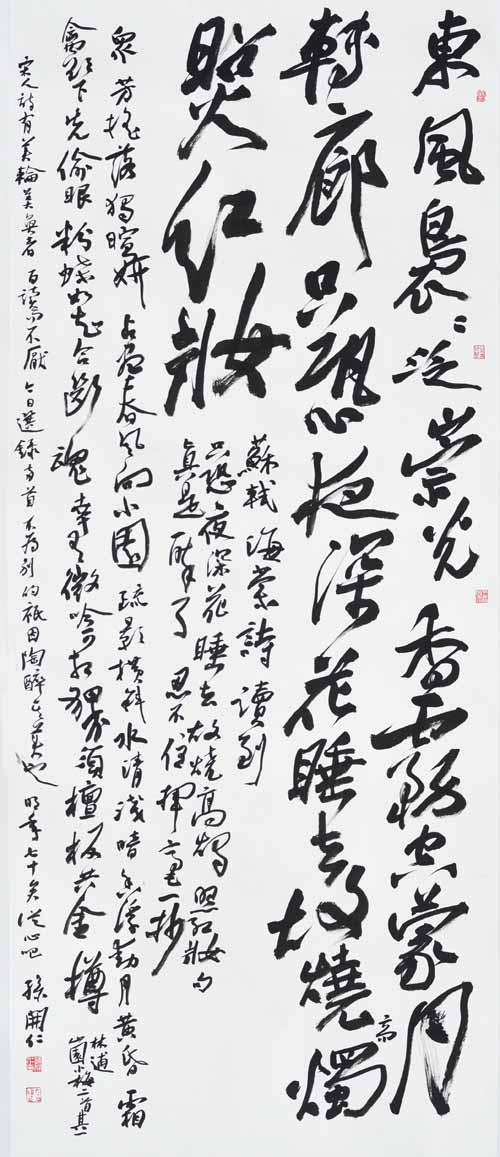 東風裊〻泛崇光香霧空蒙月
轉廊只恐夜深花睡去故燒高燭
照紅妝
蘇軾海棠詩讀到
只恐夜深花睡去故燒高燭照紅妝句
真是醉了忍不住揮毫一抄
衆芳搖落獨暄妍占盡春風向小園疏影橫斜水清淺暗香浮動月黃昏霜
禽欲下先偷眼粉蝶如知合斷魂幸有微吟可相狎不須檀板共金樽
林逋
山園小梅二首其一
宋人詩有美輪美奐者百讀不厭今日選錄兩首不為別的祇因陶醉其美也明年七十矣從心吧孫開仁